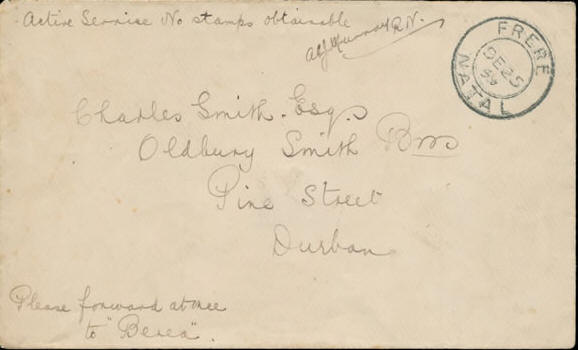 Active Service No stamps obtainable
R.N.
FRERE
DE 25
NATAL
Charles Smith. Esq.
Oldbury Smith Bros
Pine Street
Durban
Please forward at once
to "Berea".